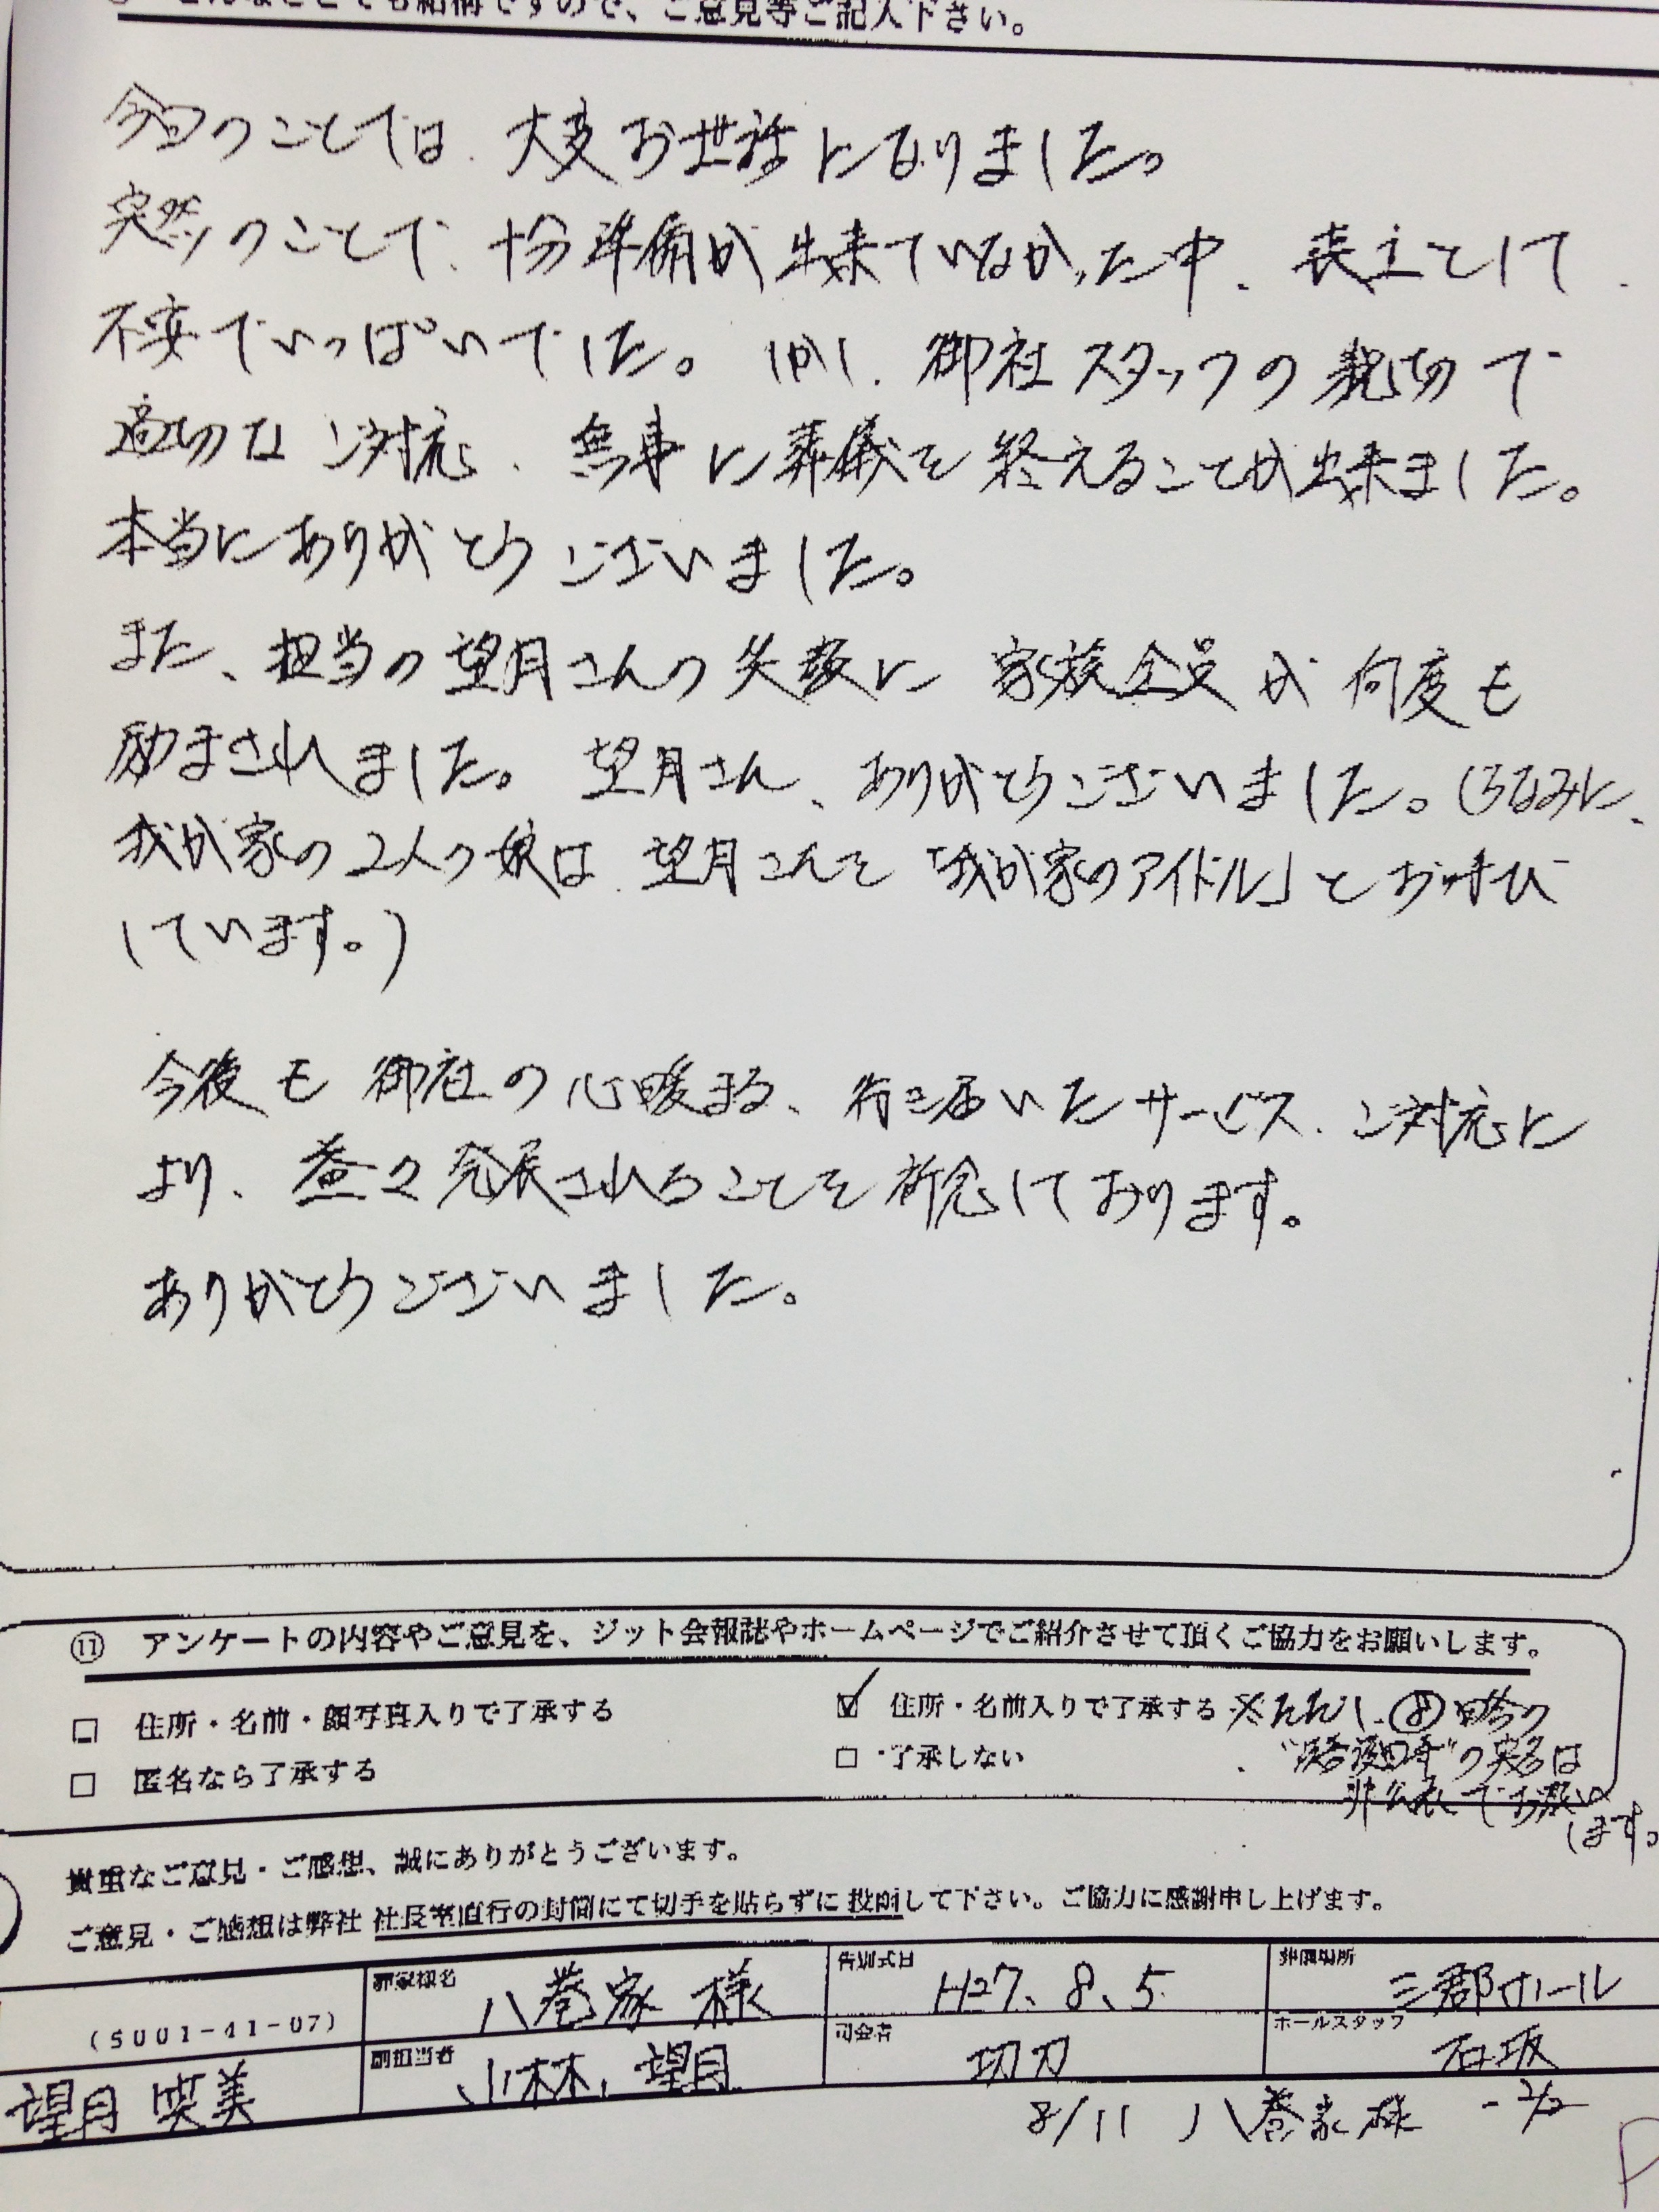 どんなことでも結構ですので、ご意見等ご記入下さい。
今回のことでは、大変お世話になりました。
突然のことで、十分準備が出来ていなかった中、喪主として、
不安でいっぱいでした。しかし、御社スタッフの親切で
適切なご対応、無事に葬儀を終えることが出来ました。
本当にありがとうございました。
また、担当の望月さんの笑顔に家族全員が何度も
励まされました。望月さん、ありがとうございました。(ちなみに、
我が家の2人の娘は、望月さんを「我が家のアイドル」とお呼び
しています。)
今後も御社の心暖まる、行き届いたサービス、ご対応に
より、益々発展されることを祈念しております。
ありがとうございました。
⑪ アンケートの内容やご意見を、ジット会報誌やホームページでご紹介させて頂くご協力をお願いします。
□ 住所・名前・顔写真入りで了承する
☑ 住所・名前入りで了承する ※但し、⑧
□ 匿名なら了承する
□ 了承しない
の実名は
非公表でお願い
します。
貴重なご意見・ご感想、誠にありがとうございます。
ご意見・ご感想は弊社 社長室直行の封筒にて切手を貼らずに投函して下さい。ご協力に感謝申し上げます。
(5001-41-07)
葬家様名 八巻家 様
告別式日 H27、8、5
葬儀場所 三郡ホール
望月 咲美
副担当者 小林、望月
司会者 切刀
ホールスタッフ 石坂
8/11 八巻家様 -2/2
P